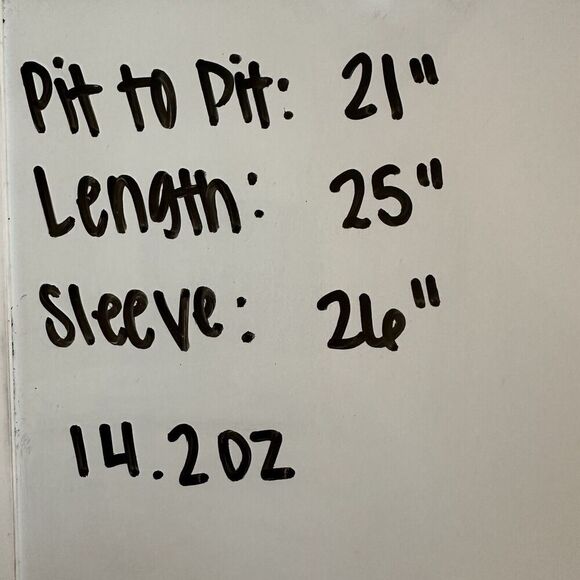 Pit to Pit: 21"
Length: 25"
Sleeve: 26"
14.2oz